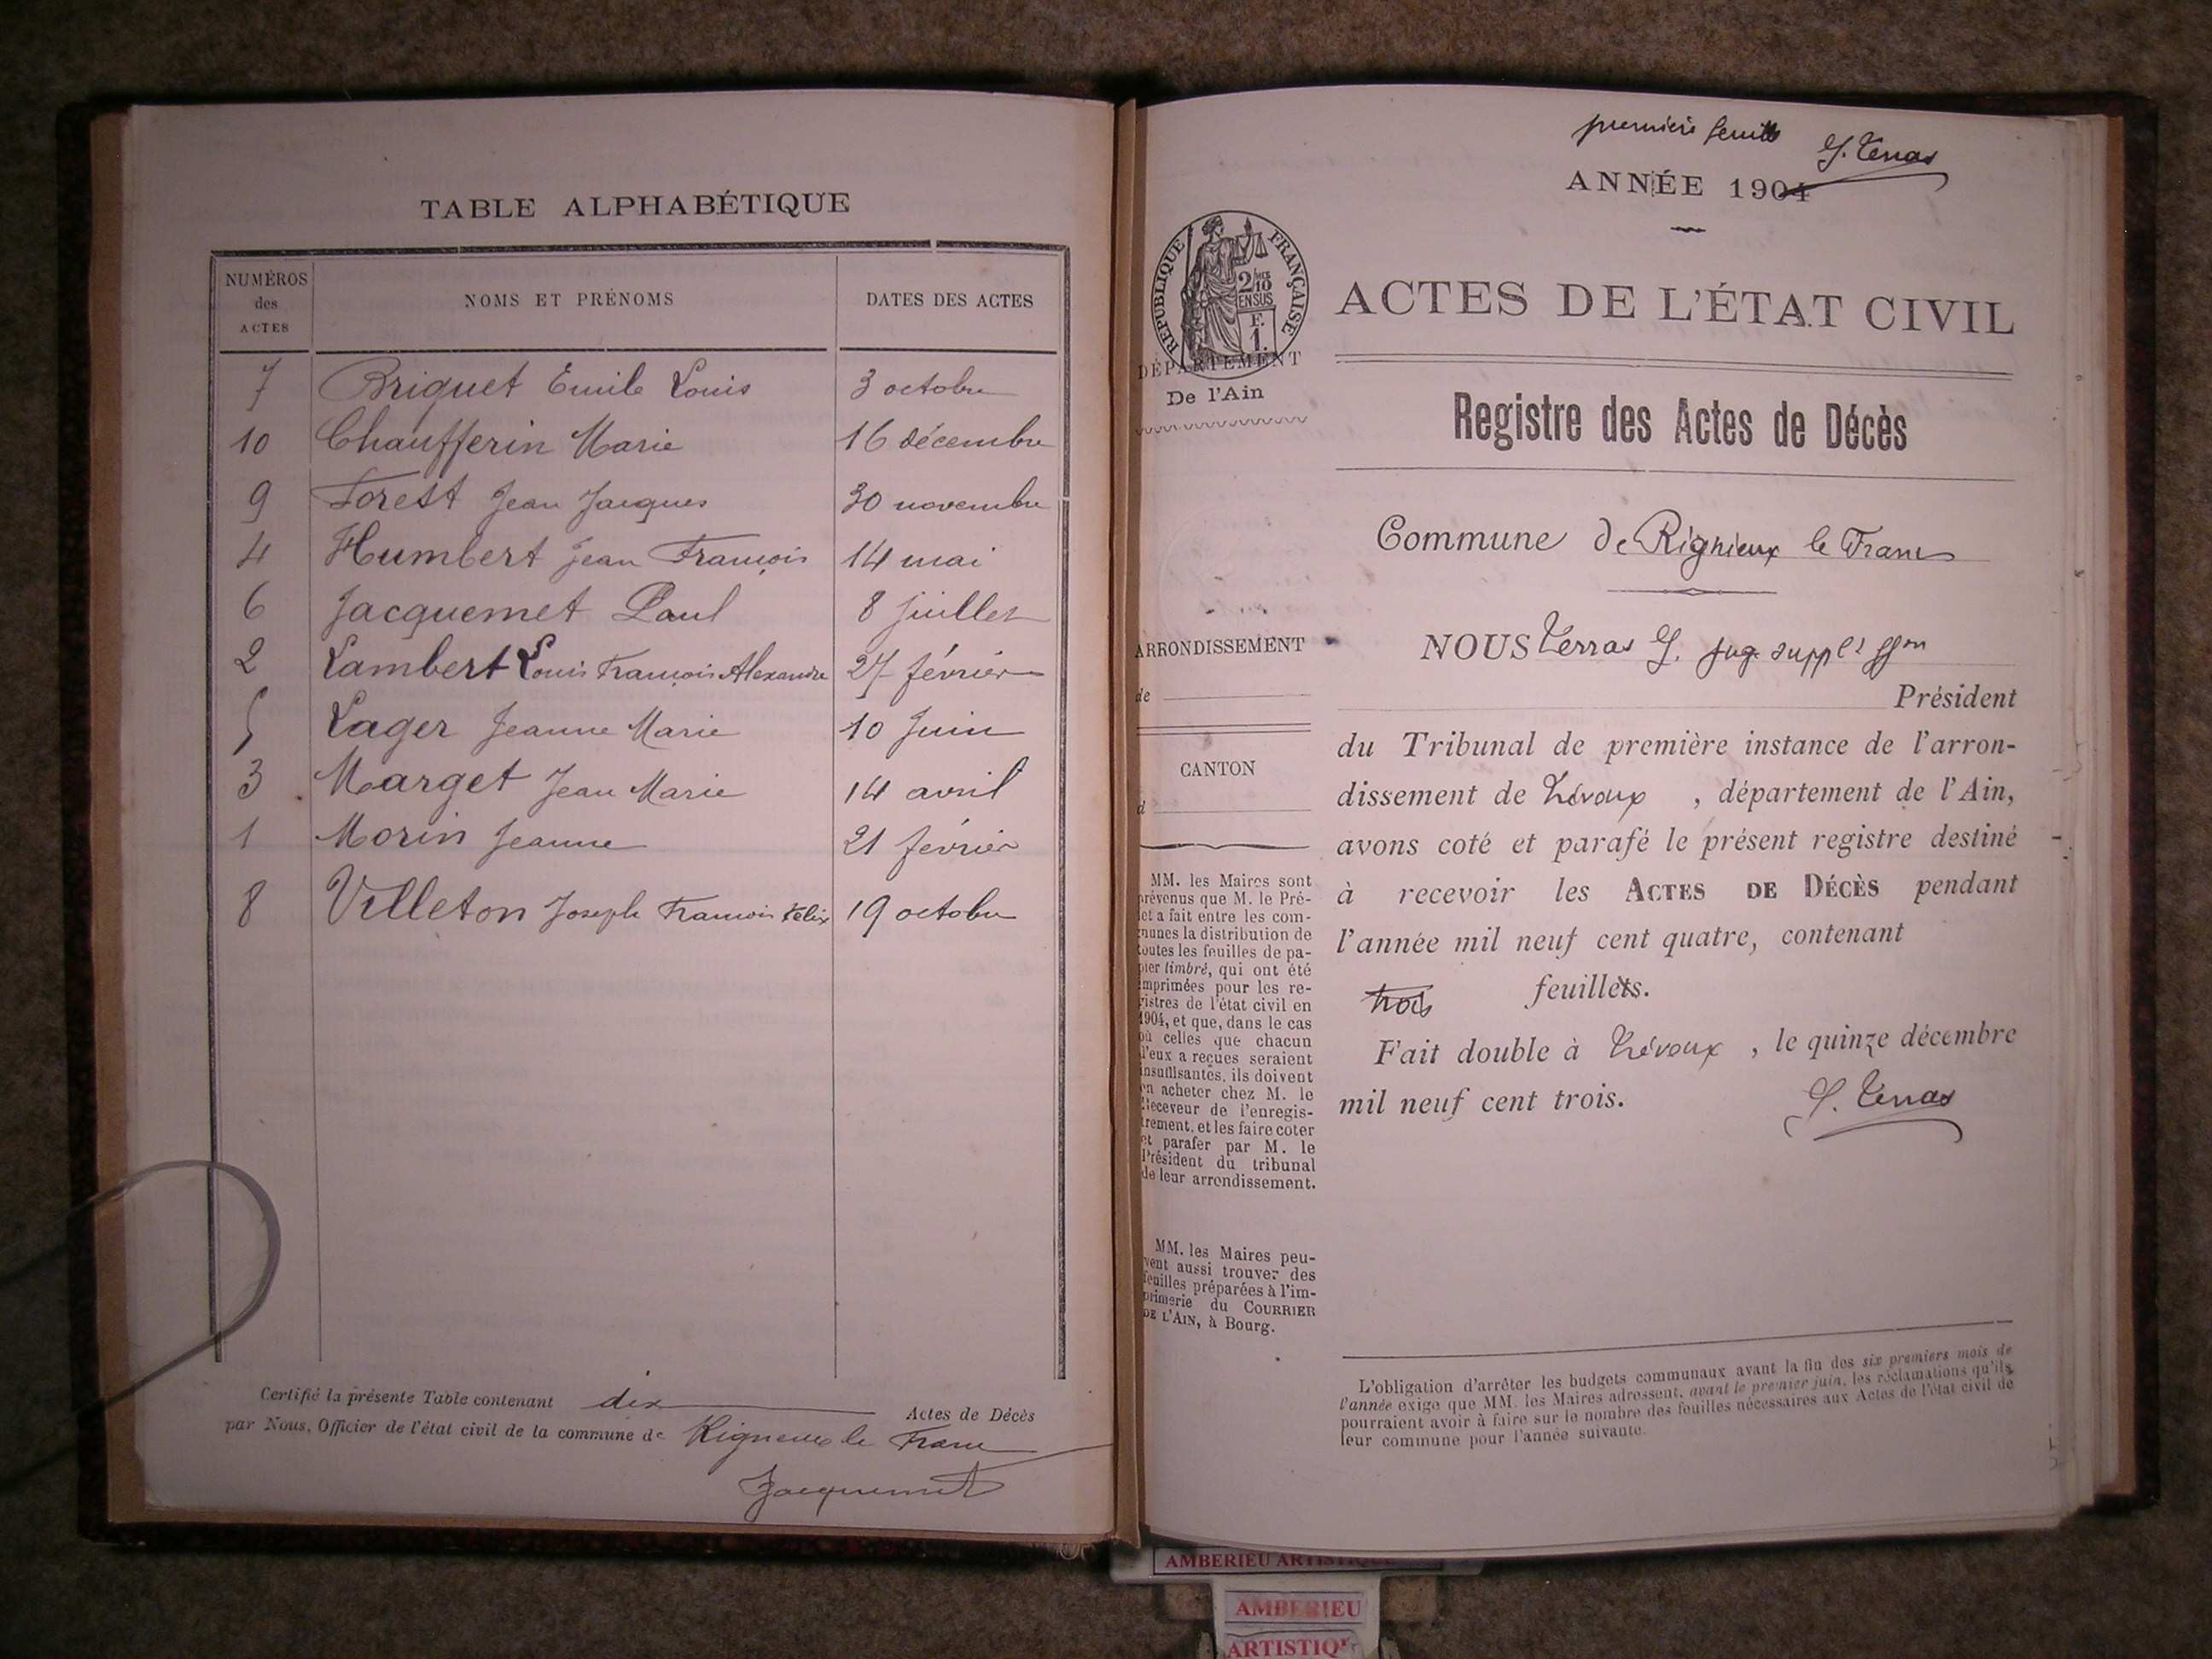 TABLE ALPHABÉTIQUE
NUMÉROS
des
ACTES
NOMS ET PRÉNOMS
DATES DES ACTES
7 Briguet Emile Louis 3 octobre
10 Chaufferin Marie 16 décembre
9 Forest Jean Jacques 30 novembre
4 Humbert Jean François 14 mai
6 Jacquemet Paul 8 juillet
2 Lambert Louis François Alexandre 27 février
5 Lager Jeanne Marie 10 Juin
3 Marget Jean Marie 14 avril
1 Morin Jeanne 21 février
8 Villeton Joseph François Félix 19 octobre
Certifié la présente Table contenant dix Actes de Décès
par Nous, Officier de l'état civil de la commune de Rigneux le Franc
Jacquemet
première feuille
G. Terras
ANNÉE 1904
RÉPUBLIQUE FRANÇAISE
2/10
EN SUS
F.
1.
DÉPARTEMENT
De l'Ain
ARRONDISSEMENT
de
CANTON
d
MM. les Maires sont
prévenus que M. le Pré-
fet a fait entre les com-
munes la distribution de
toutes les feuilles de pa-
pier timbré, qui ont été
imprimées pour les re-
gistres de l'état civil en
1904, et que, dans le cas
où celles que chacun
d'eux a reçues seraient
insuffisantes, ils doivent
en acheter chez M. le
Receveur de l'enregis-
trement, et les faire coter
et parafer par M. le
Président du tribunal
de leur arrondissement.
MM. les Maires peu-
vent aussi trouver des
feuilles préparées à l'im-
primerie du COURRIER
DE L'AIN, à Bourg.
ACTES DE L'ÉTAT CIVIL
Registre des Actes de Décès
Commune de Rignieux le Franc
NOUS Terras G. juge suppt
Président
du Tribunal de première instance de l'arron-
dissement de Trévoux , département de l'Ain,
avons coté et parafé le présent registre destiné
à recevoir les ACTES DE DÉCÈS pendant
l'année mil neuf cent quatre, contenant
trois feuillets.
Fait double à Trévoux , le quinze décembre
mil neuf cent trois.
G. Terras
L'obligation d'arrêter les budgets communaux avant la fin des six premiers mois de
l'année exige que MM. les Maires adressent, avant le premier juin, les réclamations qu'ils
pourraient avoir à faire sur le nombre des feuilles nécessaires aux Actes de l'état civil de
leur commune pour l'année suivante.
AMBERIEU ARTISTIQUE
AMBERIEU
ARTISTIQU